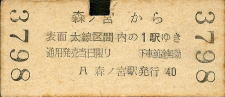 3798
森ノ宮から
表面太線区間内の1駅ゆき
通用発売当日限り 下車前途無効
森ノ宮駅発行 40
3798